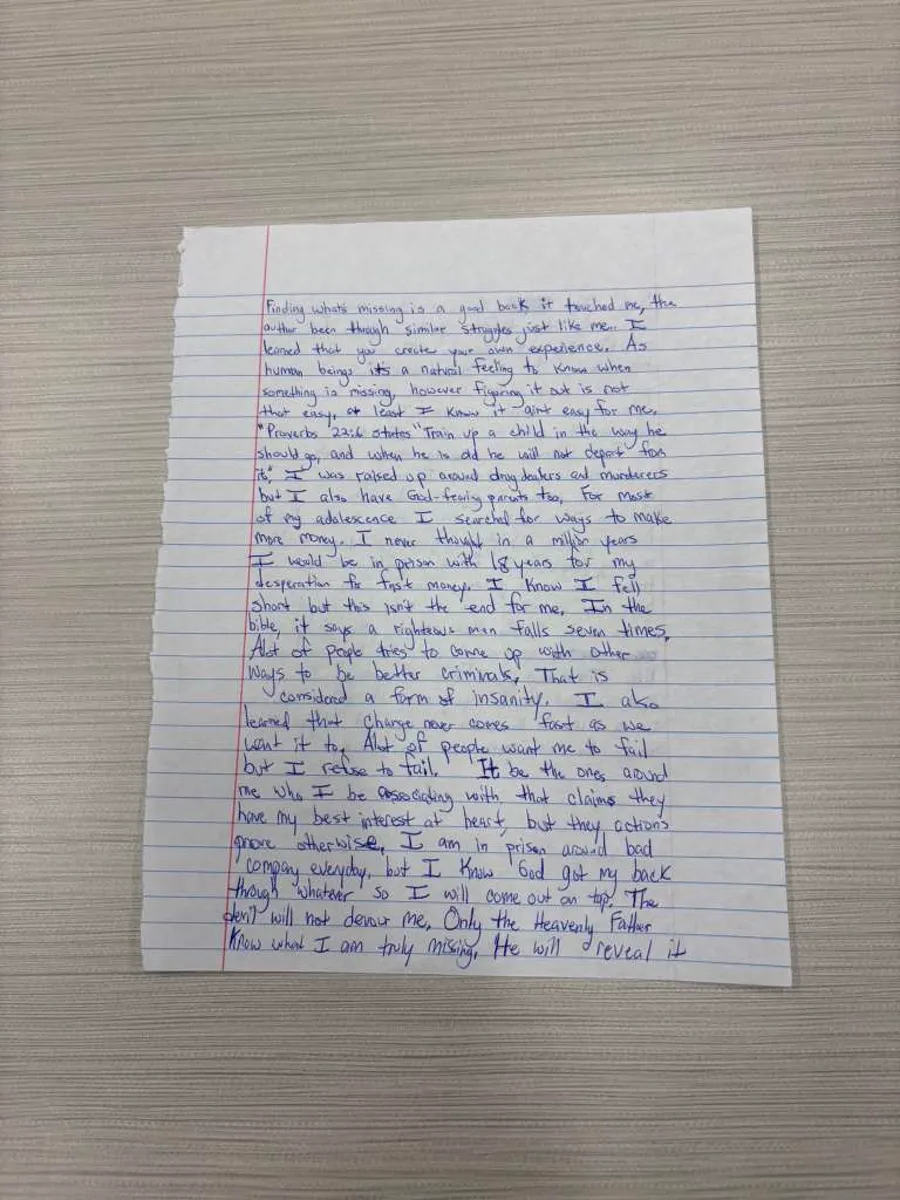 Finding whats missing is a good book it touched me, the
author been through similar struggles just like me. I
learned that you create your own experience. As
human beings it's a natural feeling to know when
something is missing, however figuring it out is not
that easy, at least I know it aint easy for me.
"Proverbs 22:6 states "Train up a child in the way he
should go, and when he is old he will not depart from
it". I was raised up around drug dealers and murderers
but I also have God-fearing parents too. For most
of my adolescence I searched for ways to make
more money. I never thought in a million years
I would be in prison with 18 years for my
desperation for fast money. I know I fell
short but this isn't the end for me. In the
bible, it says a righteous man falls seven times.
Alot of people tries to come up with other
ways to be better criminals. That is
considered a form of insanity. I also
learned that change never comes fast as we
want it to. Alot of people want me to fail
but I refuse to fail. It be the ones around
me who I be associating with that claims they
have my best interest at heart, but they actions
prove otherwise. I am in prison around bad
company everyday, but I know God got my back
through whatever so I will come out on top. The
devil will not devour me. Only the Heavenly Father
know what I am truly missing. He will reveal it